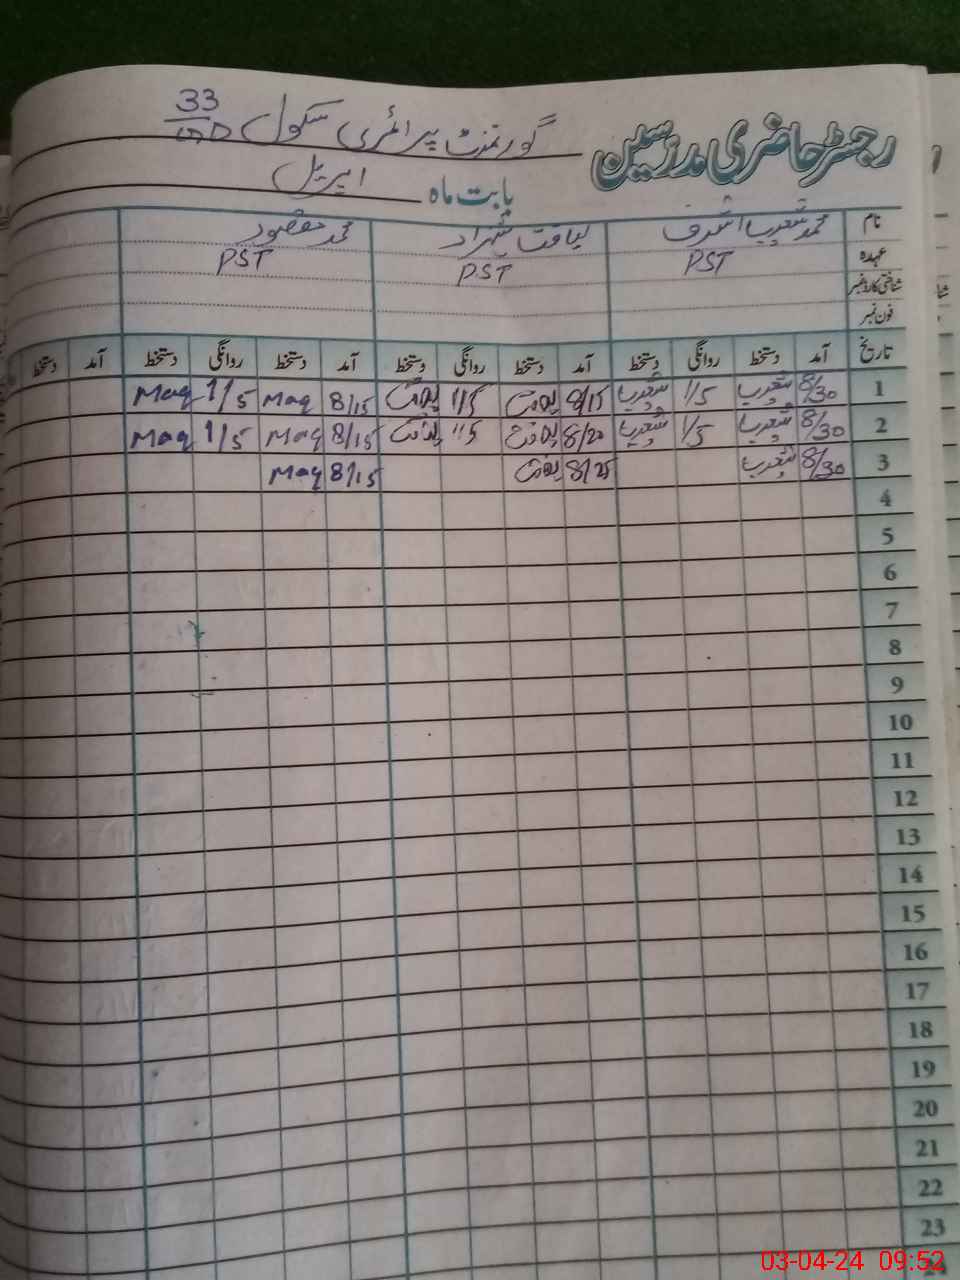 رجسٹر حاضری مدرسین گورنمنٹ پرائمری سکول 33
بابت ماہ اپریل
نام محمد شعیب اشرف لیاقت شہزاد محمد مقصود
عہدہ PST PST PST
شناختی کارڈ نمبر
فون نمبر
تاریخ آمد دستخط روانگی دستخط آمد دستخط روانگی دستخط آمد دستخط روانگی دستخط آمد دستخط
1 8/30 شعیب 1/5 شعیب 8/15 لیاقت 1/5 لیاقت 8/15 Maq 1/5 Maq
2 8/30 شعیب 1/5 شعیب 8/20 لیاقت 1/5 لیاقت 8/15 Maq 1/5 Maq
3 8/30 شعیب 8/25 لیاقت 8/15 Maq
4
5
6
7
8
9
10
11
12
13
14
15
16
17
18
19
20
21
22
23
03-04-24 09:52